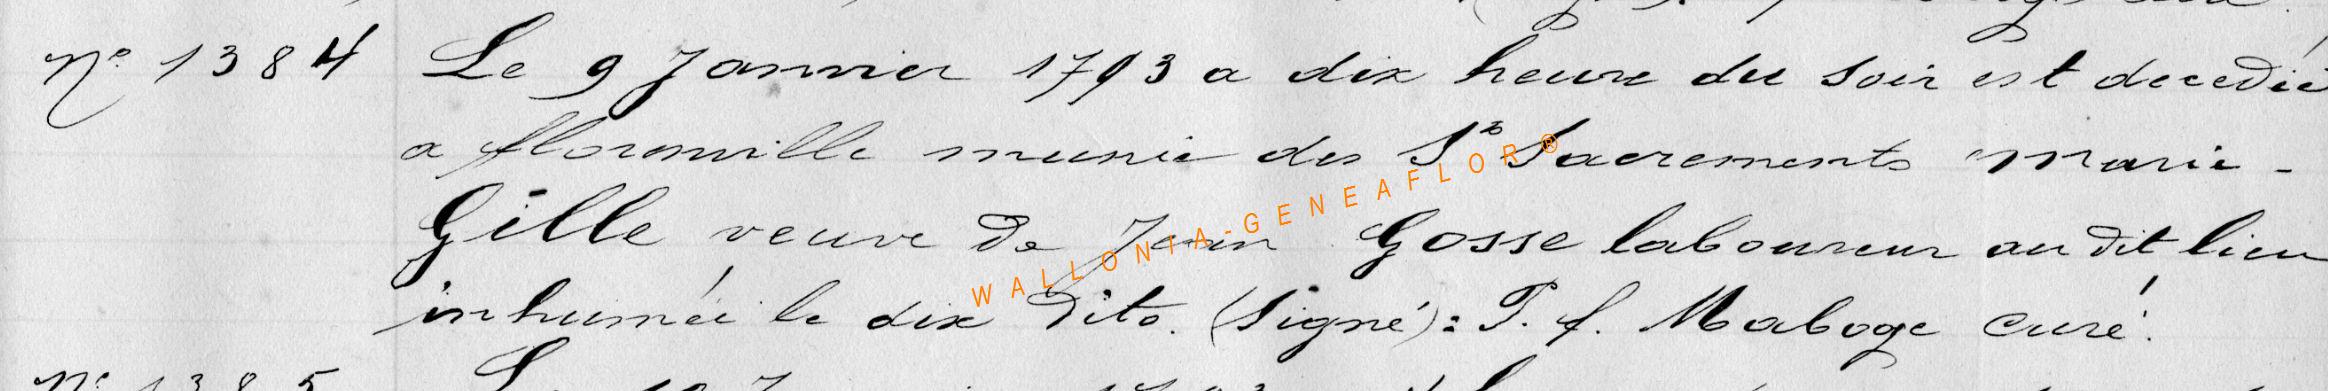 N° 1384 Le 9 Janvier 1793 a dix heure du soir est decedée
a florenville munie des Sts Sacrements marie -
Gille veuve de Jean Gosse laboureur au dit lieu
inhumée le dix dito. (Signé): P. f. Maboge curé.
N° 1385
WALLONIA-GENEAFLOR®